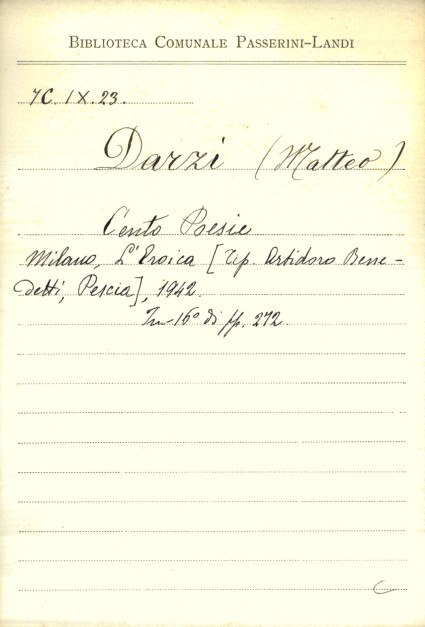 BIBLIOTECA COMUNALE PASSERINI-LANDI
7C. IX. 23.
Darzi (Matteo)
Cento Poesie
Milano, L'Eroica [Tip. Artidoro Bene-
detti, Pescia], 1942.
In-16° di pp. 272.